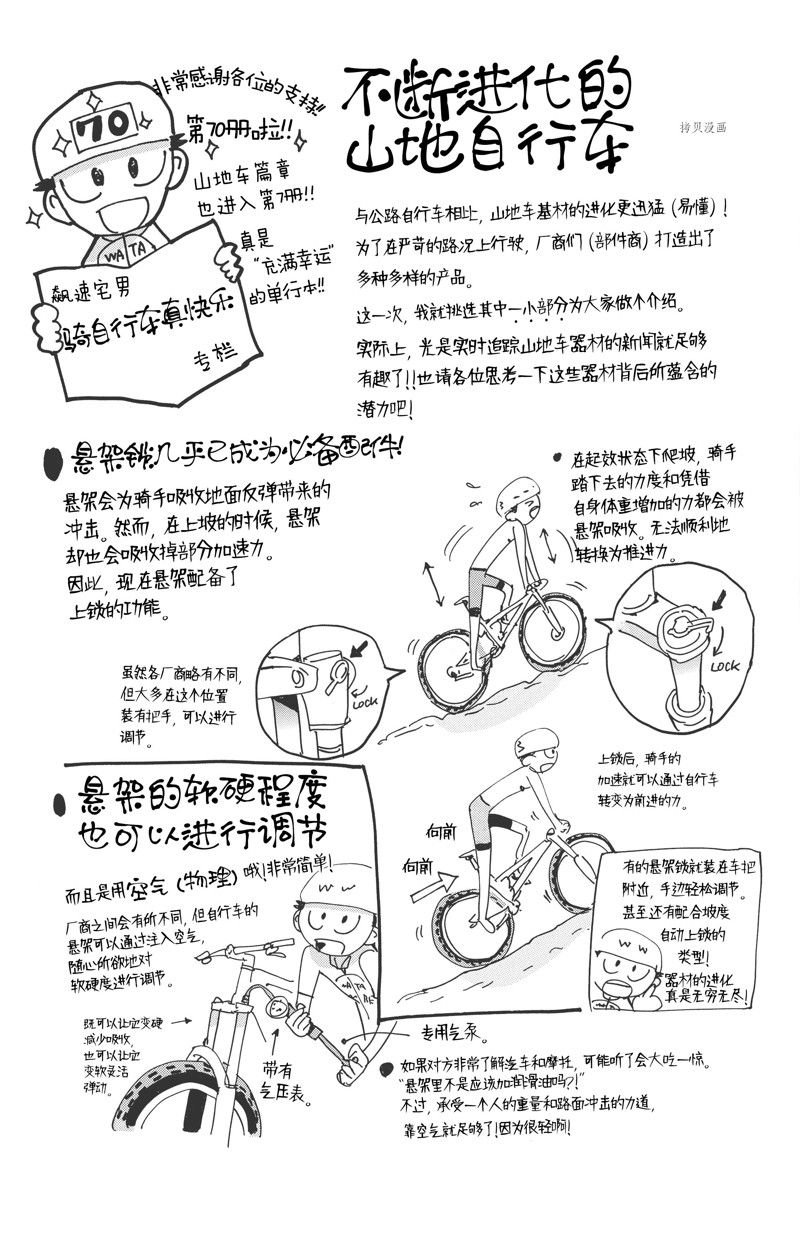 70
非常感谢各位的支持!!
第70册啦!!
山地车篇章
也进入第7册!!
真是
“充满幸运”
的单行本!!
WATA
飙速宅男
骑自行车真快乐
专栏
不断进化的
山地自行车
拷贝漫画
与公路自行车相比，山地车基材的进化更迅猛（易懂）！
为了在严苛的路况上行驶，厂商们（部件商）打造出了
多种多样的产品。
这一次，我就挑选其中一小部分为大家做个介绍。
实际上，光是实时追踪山地车器材的新闻就足够
有趣了!!也请各位思考一下这些器材背后所蕴含的
潜力吧！
●悬架锁几乎已成为必备配件！
悬架会为骑手吸收地面反弹带来的
冲击。然而，在上坡的时候，悬架
却也会吸收掉部分加速力。
因此，现在悬架配备了
上锁的功能。
●在起效状态下爬坡，骑手
踏下去的力度和凭借
自身体重增加的力都会被
悬架吸收。无法顺利地
转换为推进力。
虽然各厂商略有不同，
但大多在这个位置
装有把手，可以进行
调节。
LOCK
LOCK
上锁后，骑手的
加速就可以通过自行车
转变为前进的力。
向前
向前
有的悬架锁就装在车把
附近，手边轻松调节。
甚至还有配合坡度
自动上锁的
类型！
器材的进化
真是无穷无尽！
●悬架的软硬程度
也可以进行调节
而且是用空气（物理）哦！非常简单！
厂商之间会有所不同，但自行车的
悬架可以通过注入空气，
随心所欲地对
软硬度进行调节。
既可以让它变硬
减少吸收，
也可以让它
变软灵活
弹动。
带有
气压表。
专用气泵。
●如果对方非常了解汽车和摩托，可能听了会大吃一惊。
“悬架里不是应该加润滑油吗？！”
不过，承受一个人的重量和路面冲击的力道，
靠空气就足够了！因为很轻啊！